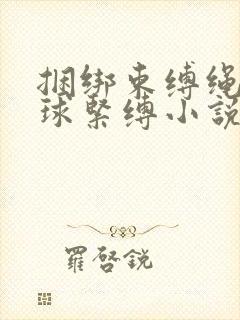 捆绑束缚绳
球紧缚小说
羅啓銳